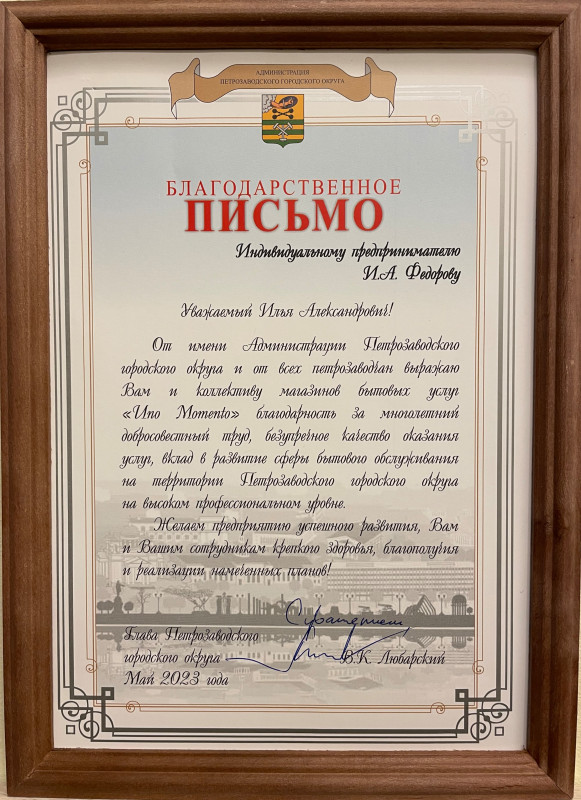 АДМИНИСТРАЦИЯ
ПЕТРОЗАВОДСКОГО ГОРОДСКОГО ОКРУГА
БЛАГОДАРСТВЕННОЕ
ПИСЬМО
Индивидуальному предпринимателю
И.А. Федорову
Уважаемый Илья Александрович!
От имени Администрации Петрозаводского
городского округа и от всех петрозаводчан выражаю
Вам и коллективу магазинов бытовых услуг
«Uno Momento» благодарность за многолетний
добросовестный труд, безупречное качество оказания
услуг, вклад в развитие сферы бытового обслуживания
на территории Петрозаводского городского округа
на высоком профессиональном уровне.
Желаем предприятию успешного развития, Вам
и Вашим сотрудникам крепкого здоровья, благополучия
и реализации намеченных планов!
С уважением
Глава Петрозаводского
городского округа В.К. Любарский
Май 2023 года